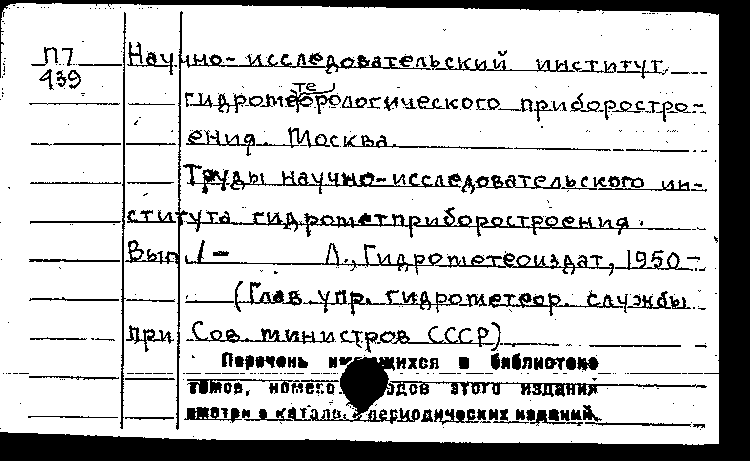 П7 Научно-исследовательский институт
439
гидрометеорологического приборостро-
ения. Москва.
Труды научно-исследовательского ин-
ститута гидрометприборостроения.
Вып. 1- Л., Гидрометеоиздат, 1950-
(Глав. упр. гидрометеор. службы
при Сов. министров СССР).
Перечень имеющихся в библиотеке
томов, издания
смотри в периодических изданий.